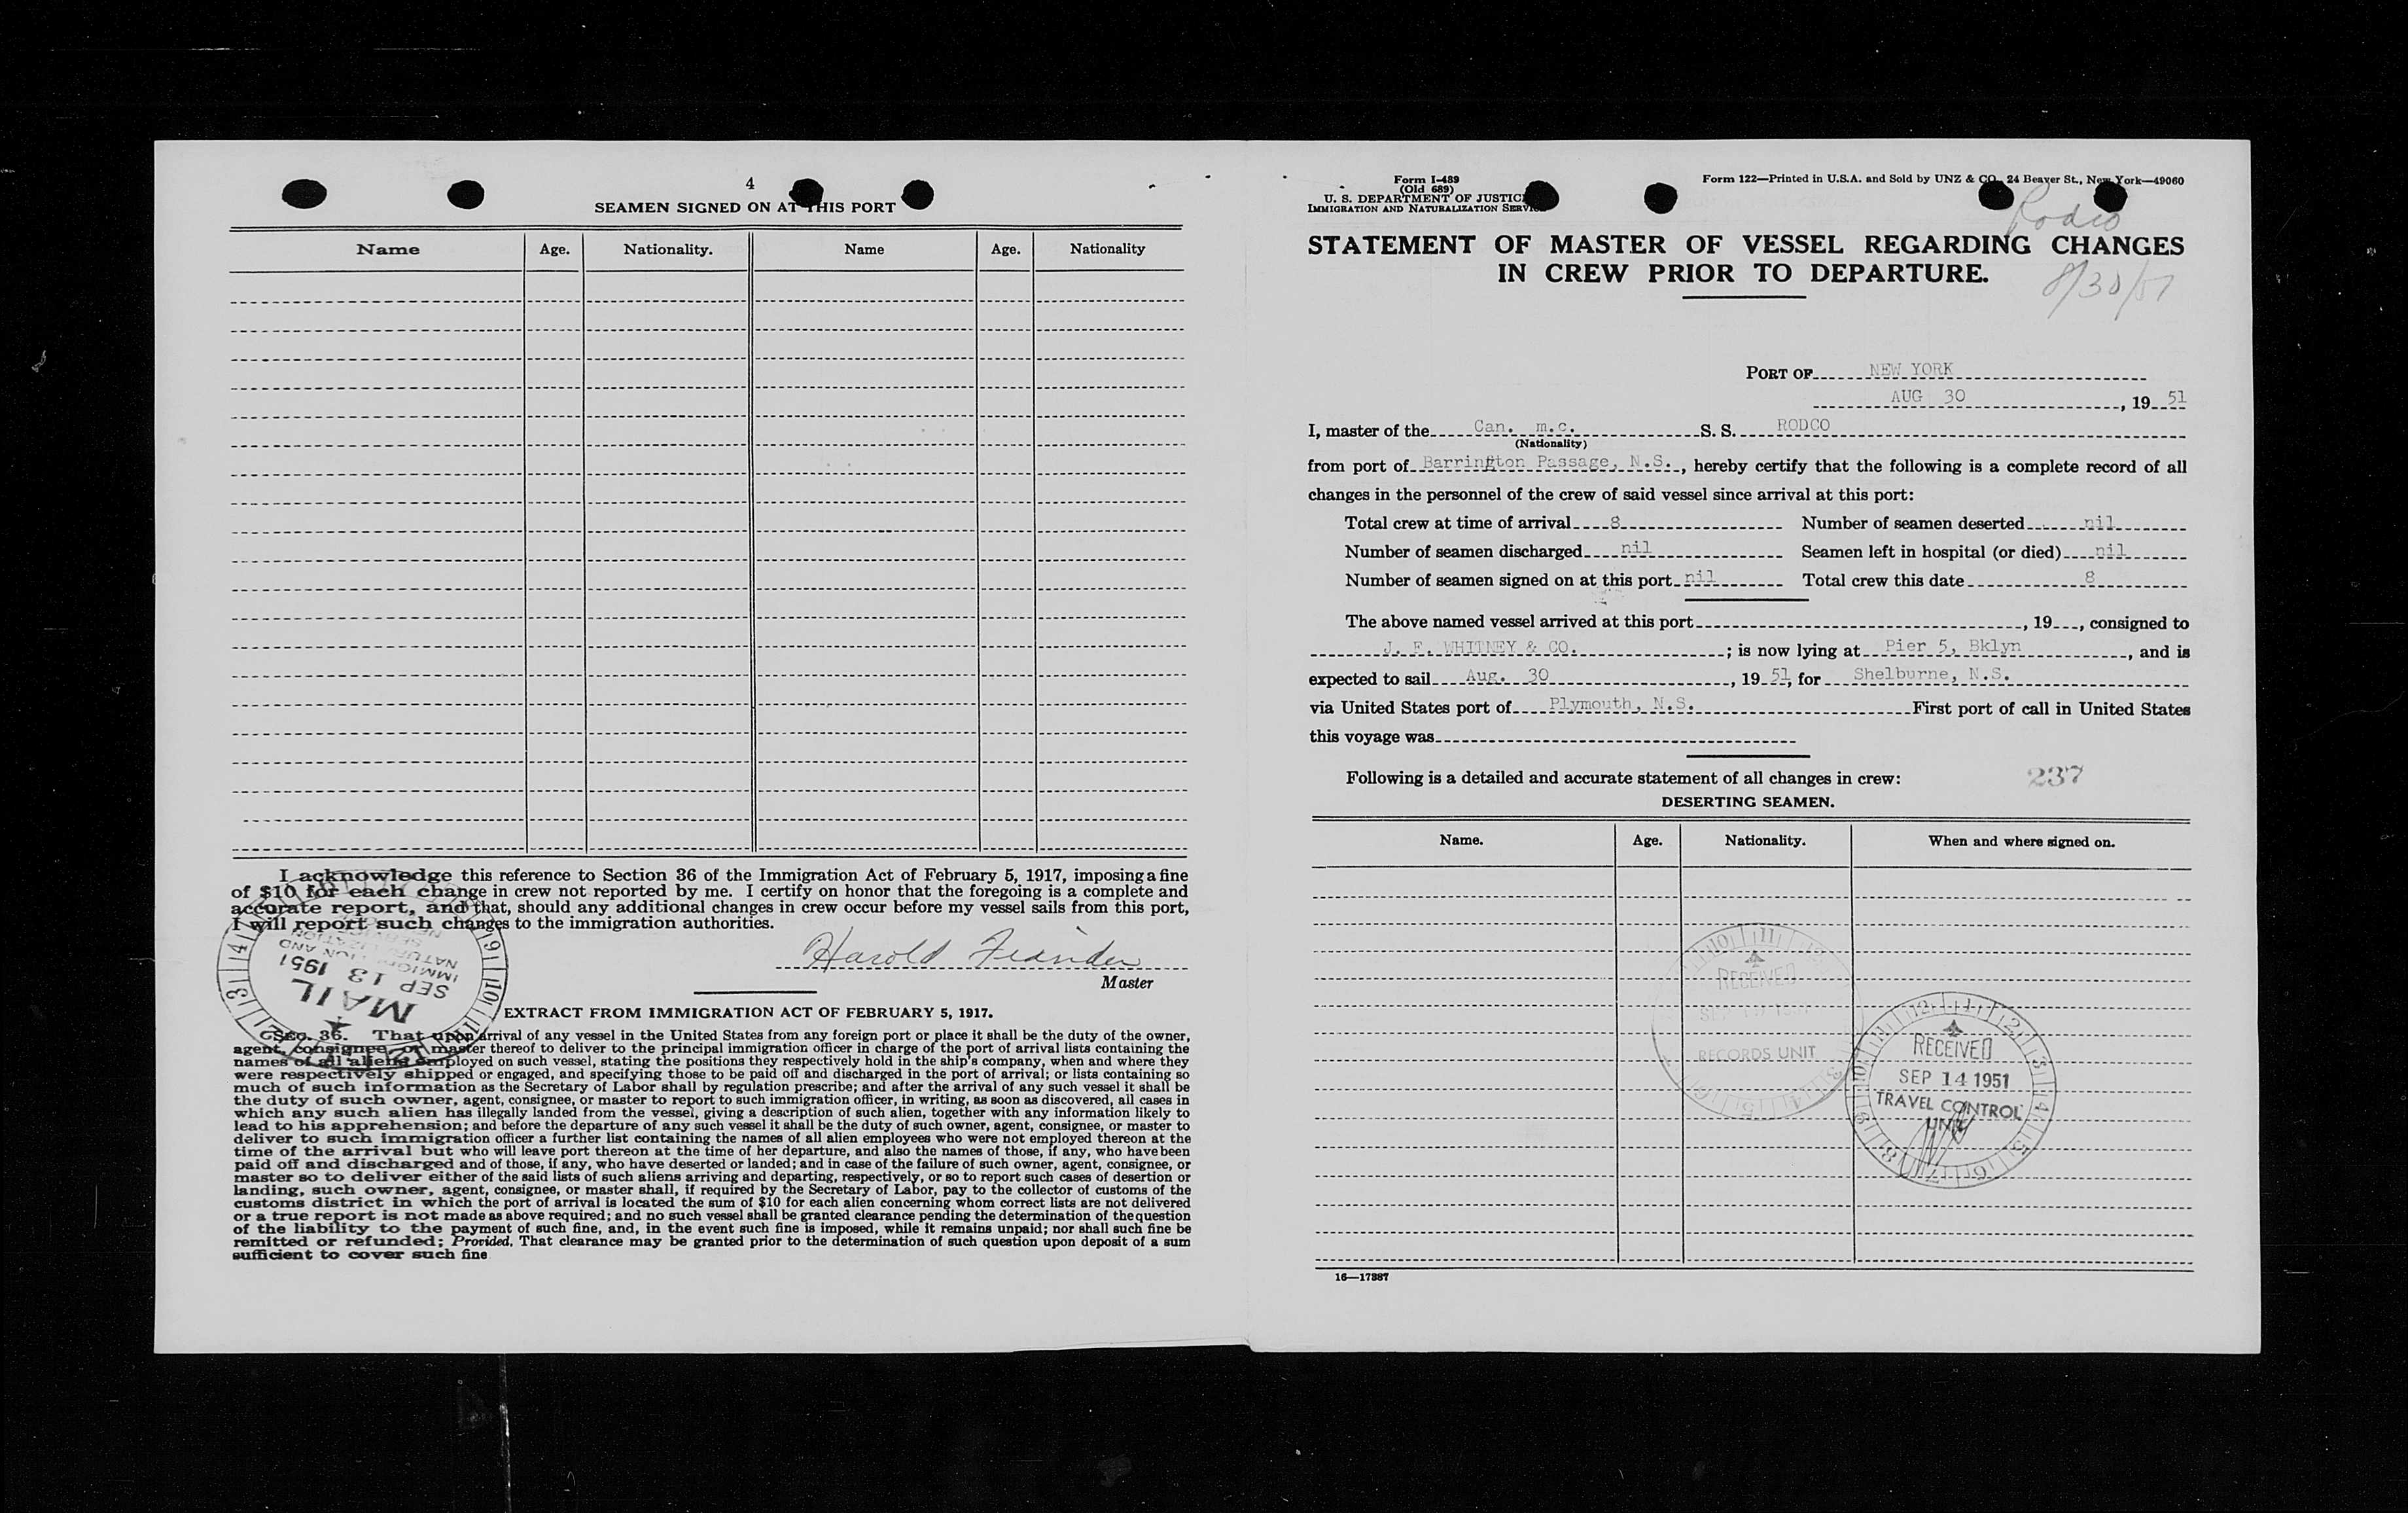 4
SEAMEN SIGNED ON AT THIS PORT
Name Age. Nationality. Name Age. Nationality
I acknowledge this reference to Section 36 of the Immigration Act of February 5, 1917, imposing a fine
of $10 for each change in crew not reported by me. I certify on honor that the foregoing is a complete and
accurate report, and that, should any additional changes in crew occur before my vessel sails from this port,
I will report such changes to the immigration authorities.
Harold
Master
MAIL
SEP 13 1951
IMMIGRATION AND
NATURALIZATION
SERVICE
EXTRACT FROM IMMIGRATION ACT OF FEBRUARY 5, 1917.
SEC. 36. That upon arrival of any vessel in the United States from any foreign port or place it shall be the duty of the owner,
agent, consignee, or master thereof to deliver to the principal immigration officer in charge of the port of arrival lists containing the
names of all aliens employed on such vessel, stating the positions they respectively hold in the ship's company, when and where they
were respectively shipped or engaged, and specifying those to be paid off and discharged in the port of arrival; or lists containing so
much of such information as the Secretary of Labor shall by regulation prescribe; and after the arrival of any such vessel it shall be
the duty of such owner, agent, consignee, or master to report to such immigration officer, in writing, as soon as discovered, all cases in
which any such alien has illegally landed from the vessel, giving a description of such alien, together with any information likely to
lead to his apprehension; and before the departure of any such vessel it shall be the duty of such owner, agent, consignee, or master to
deliver to such immigration officer a further list containing the names of all alien employees who were not employed thereon at the
time of the arrival but who will leave port thereon at the time of her departure, and also the names of those, if any, who have been
paid off and discharged and of those, if any, who have deserted or landed; and in case of the failure of such owner, agent, consignee, or
master so to deliver either of the said lists of such aliens arriving and departing, respectively, or so to report such cases of desertion or
landing, such owner, agent, consignee, or master shall, if required by the Secretary of Labor, pay to the collector of customs of the
customs district in which the port of arrival is located the sum of $10 for each alien concerning whom correct lists are not delivered
or a true report is not made as above required; and no such vessel shall be granted clearance pending the determination of the question
of the liability to the payment of such fine, and, in the event such fine is imposed, while it remains unpaid; nor shall such fine be
remitted or refunded; Provided, That clearance may be granted prior to the determination of such question upon deposit of a sum
sufficient to cover such fine
Form I-489
(Old 689)
U. S. DEPARTMENT OF JUSTICE
IMMIGRATION AND NATURALIZATION SERVICE
Form 122—Printed in U.S.A. and Sold by UNZ & CO., 24 Beaver St., New York—49060
Rodco
STATEMENT OF MASTER OF VESSEL REGARDING CHANGES
IN CREW PRIOR TO DEPARTURE.
8/30/51
PORT OF NEW YORK
AUG 30, 19 51
I, master of the Can. m.c. S. S. RODCO
(Nationality)
from port of Barrington Passage, N.S., hereby certify that the following is a complete record of all
changes in the personnel of the crew of said vessel since arrival at this port:
Total crew at time of arrival 8 Number of seamen deserted nil
Number of seamen discharged nil Seamen left in hospital (or died) nil
Number of seamen signed on at this port nil Total crew this date 8
The above named vessel arrived at this port , 19 , consigned to
J. F. WHITNEY & CO. ; is now lying at Pier 5, Bklyn , and is
expected to sail Aug. 30 , 19 51, for Shelburne, N.S.
via United States port of Plymouth, N.S. First port of call in United States
this voyage was
Following is a detailed and accurate statement of all changes in crew: 237
DESERTING SEAMEN.
Name. Age. Nationality. When and where signed on.
RECEIVED
RECORDS UNIT
RECEIVED
SEP 14 1951
TRAVEL CONTROL
UNIT
16—17387